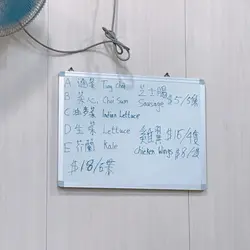 A 通菜 Tung choi 芝士腸
B 菜心 Choi Sum Sausage $5/5條
C 油麥菜 Indian Lettuce
D 生菜 Lettuce 雞翼 $15/4隻
E 芥蘭 Kale chicken wings $8/2隻
$18/6菜